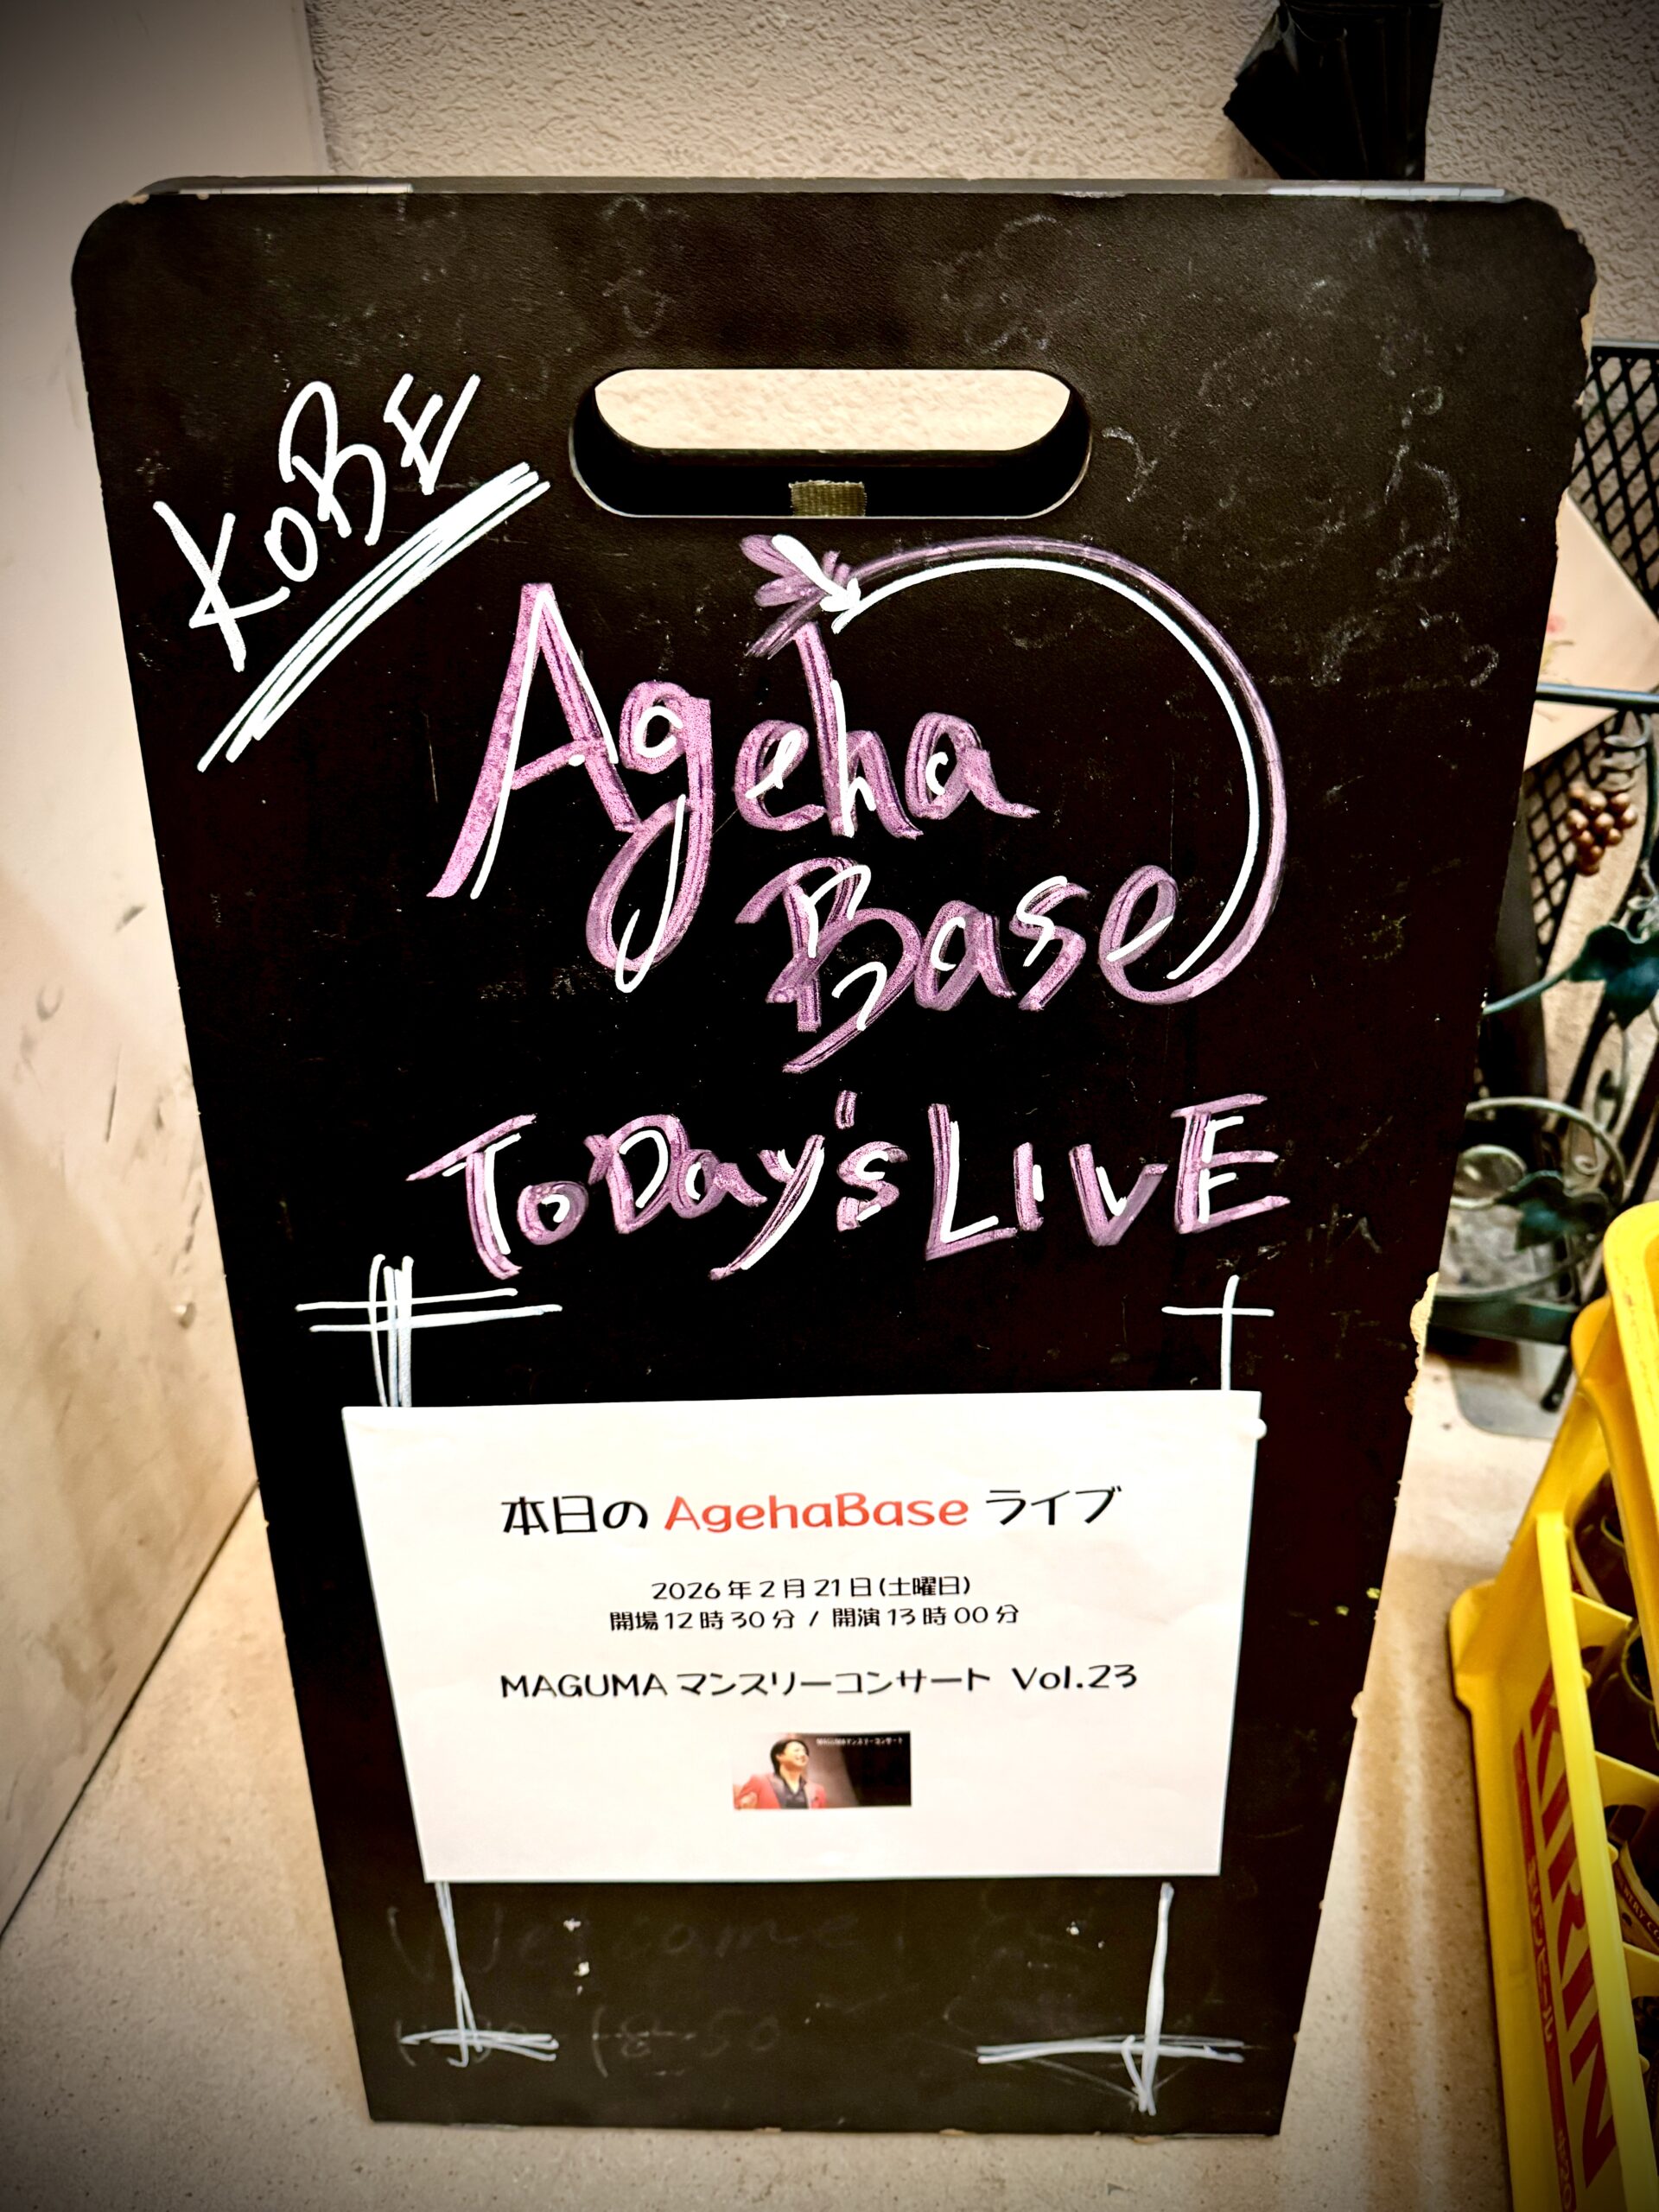 KOBE
Ageha
Base
ToDay's LIVE
本日の AgehaBase ライブ
2026年2月21日(土曜日)
開場12時30分 / 開演13時00分
MAGUMA マンスリーコンサート Vol.23
MAGUMAマンスリーコンサート
Welcome
KIRIN